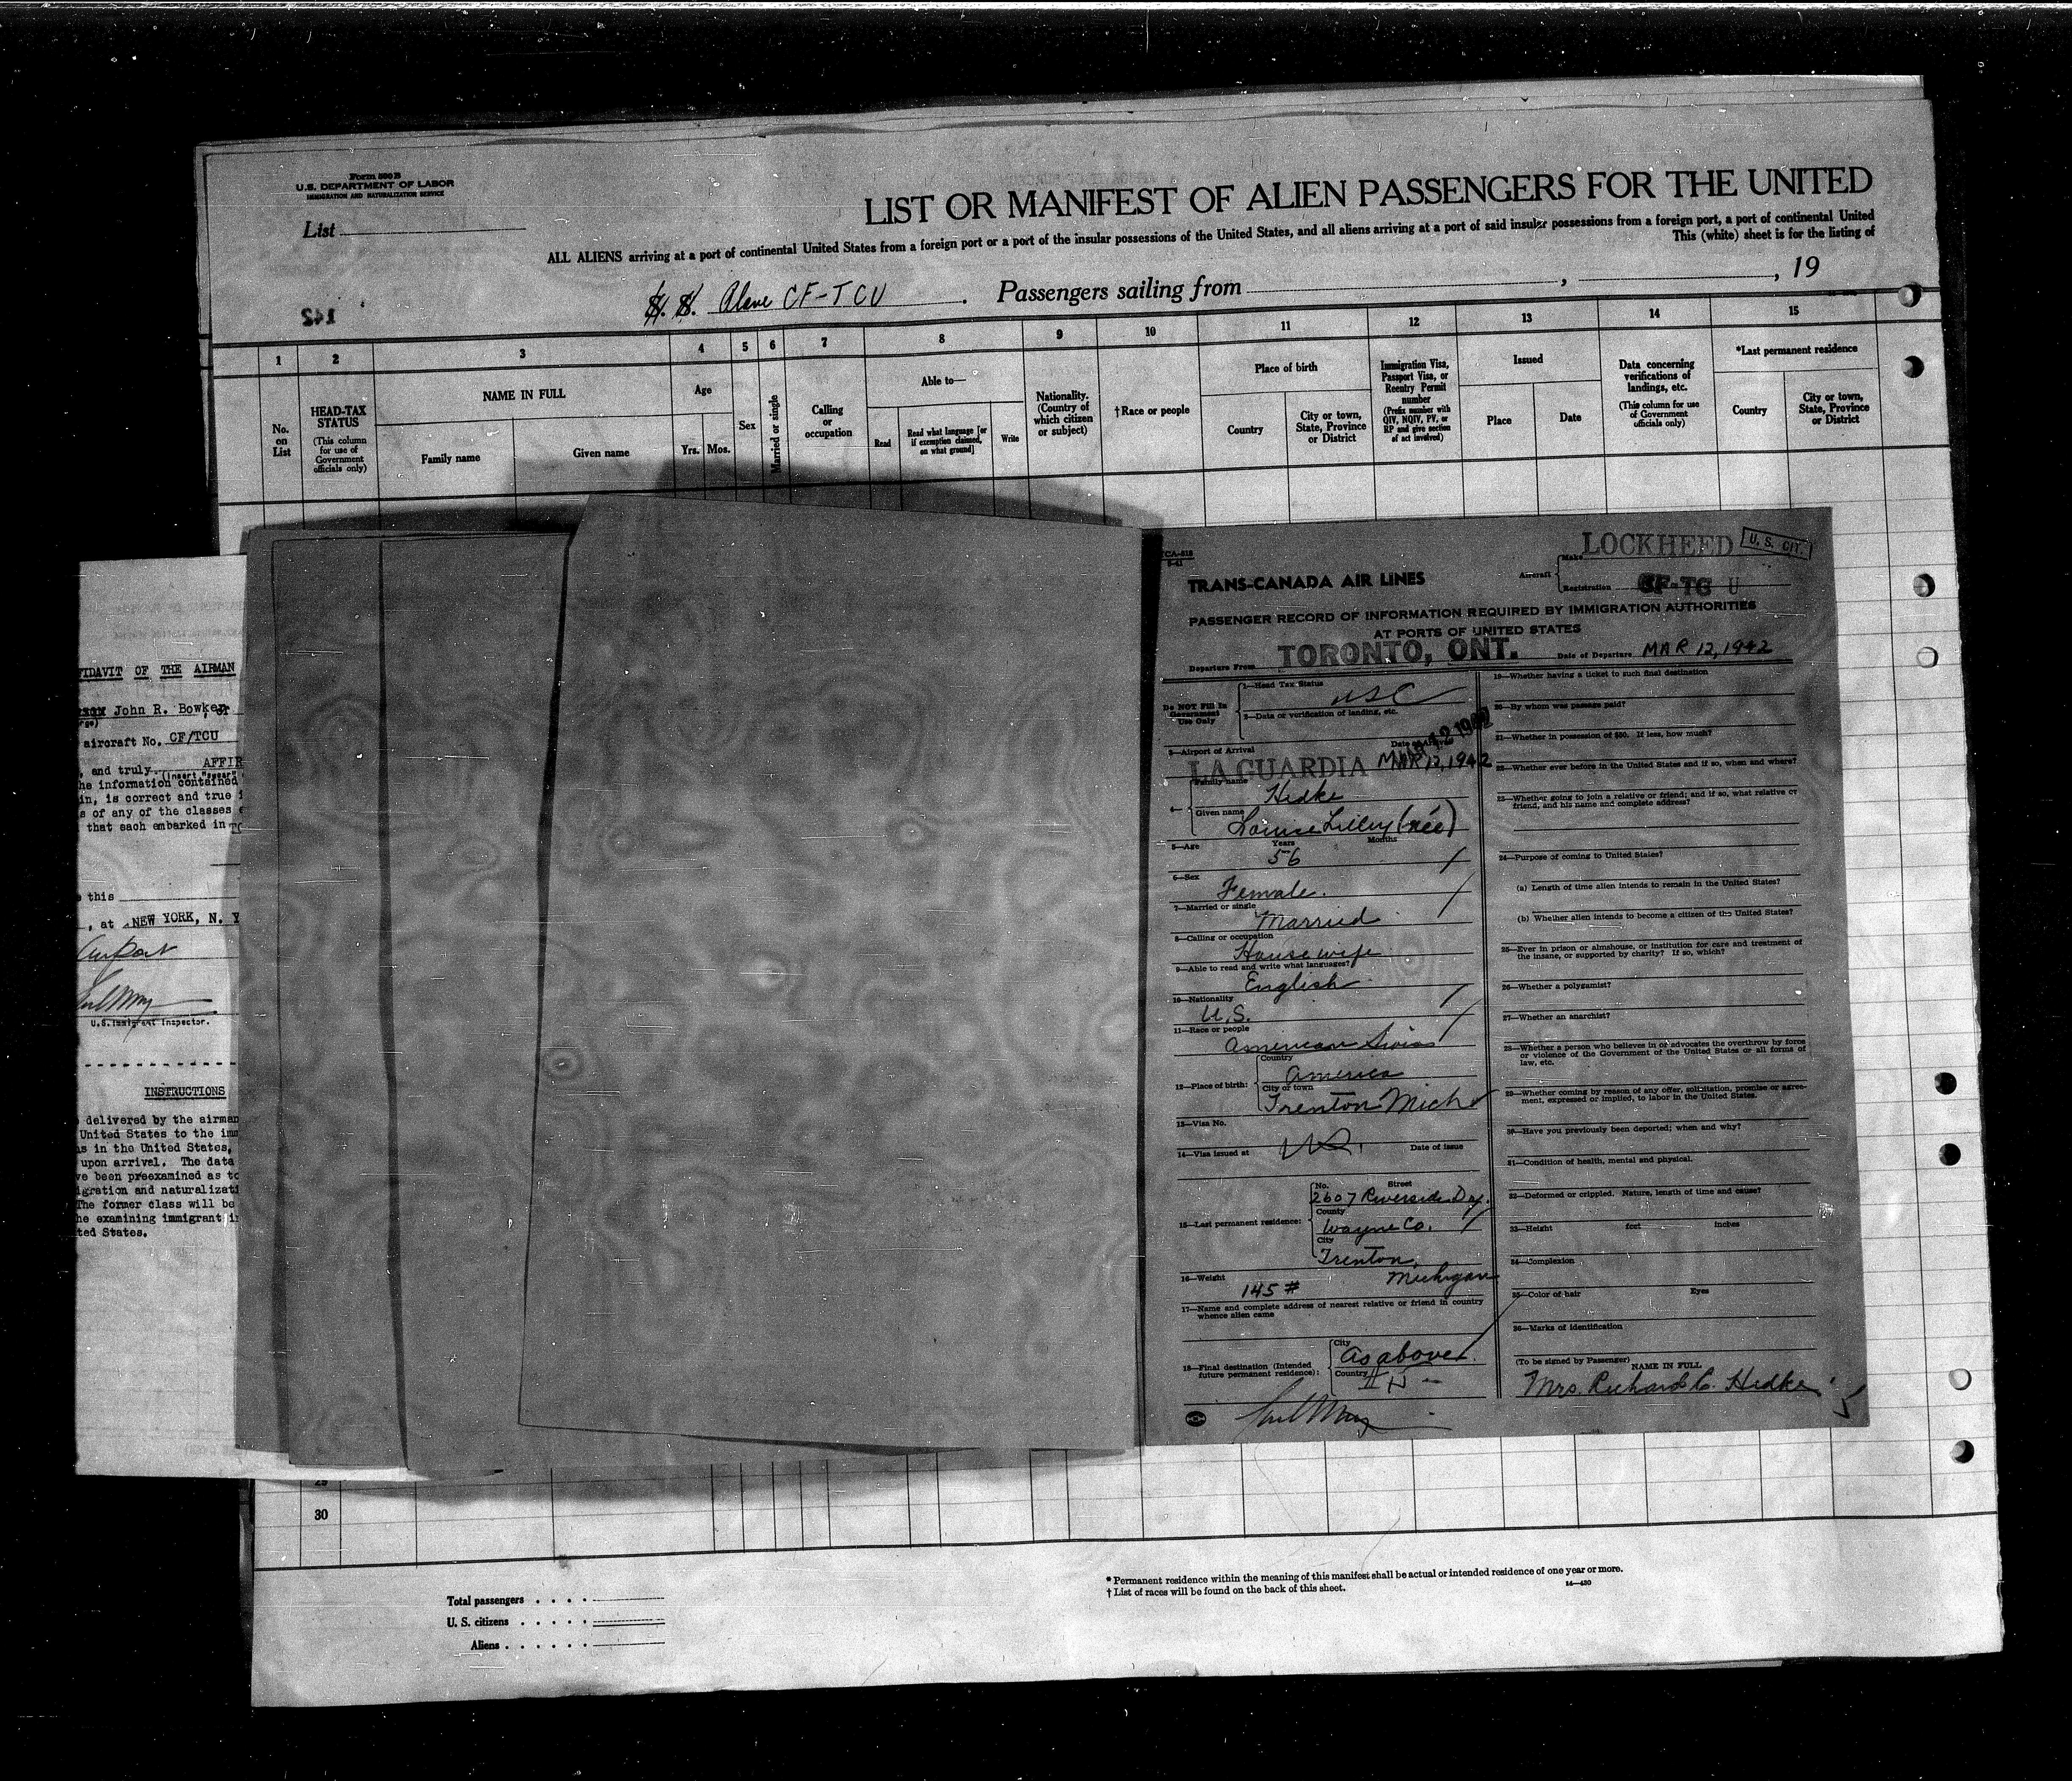 Form 500 B
U.S. DEPARTMENT OF LABOR
IMMIGRATION AND NATURALIZATION SERVICE
List
LIST OR MANIFEST OF ALIEN PASSENGERS FOR THE UNITED
ALL ALIENS arriving at a port of continental United States from a foreign port or a port of the insular possessions of the United States, and all aliens arriving at a port of said insular possessions from a foreign port, a port of continental United
This (white) sheet is for the listing of
S. S. Plane CF-TCU . Passengers sailing from , , 19
142
1 2 3 4 5 6 7 8 9 10 11 12 13 14 15
No. on List
HEAD-TAX STATUS
(This column for use of Government officials only)
NAME IN FULL
Family name
Given name
Age
Yrs. Mos.
Sex
Married or single
Calling or occupation
Able to—
Read
Read what language [or if exemption claimed, on what ground]
Write
Nationality. (Country of which citizen or subject)
†Race or people
Place of birth
Country
City or town, State, Province or District
Immigration Visa, Passport Visa, or Reentry Permit number
(Prefix number with QIV, NQIV, PV, or RP and give section of act involved)
Issued
Place
Date
Data concerning verifications of landings, etc.
(This column for use of Government officials only)
*Last permanent residence
Country
City or town, State, Province or District
FIDAVIT OF THE AIRMAN
John R. Bowker
aircraft No. CF/TCU
, and truly AFFIR
(insert "swear"
he information contained
in, is correct and true
s of any of the classes
that each embarked in
this
, at NEW YORK, N. Y
Airport
U.S. Immigrant Inspector.
INSTRUCTIONS
delivered by the airman
United States to the imm
s in the United States,
upon arrival. The data
ve been preexamined as to
igration and naturalizati
The former class will be
he examining immigrant in
ted States.
TCA-518
TRANS-CANADA AIR LINES
Aircraft
Make LOCKHEED
U. S. CIT.
Registration CF-TC U
PASSENGER RECORD OF INFORMATION REQUIRED BY IMMIGRATION AUTHORITIES
AT PORTS OF UNITED STATES
Departure From TORONTO, ONT. Date of Departure MAR 12, 1942
Do NOT Fill In Government Use Only
1—Head Tax Status USC
2—Data or verification of landing, etc.
3—Airport of Arrival LA GUARDIA
MAR 12, 1942
4—
Family name Hedke
Given name Louise Lilley (née)
5—Age Years 56 Months
6—Sex Female.
7—Married or single Married
8—Calling or occupation Housewife
9—Able to read and write what languages? English
10—Nationality U.S.
11—Race or people American Swiss
12—Place of birth:
Country America
City or town Trenton Mich
13—Visa No.
14—Visa issued at Date of issue
15—Last permanent residence:
No. Street
2607 Riverside
County Wayne Co.
City Trenton,
Michigan
16—Weight 145 #
17—Name and complete address of nearest relative or friend in country
whence alien came
18—Final destination (Intended
future permanent residence):
City As above.
Country
19—Whether having a ticket to such final destination
20—By whom was passage paid?
21—Whether in possession of $50. If less, how much?
22—Whether ever before in the United States and if so, when and where?
23—Whether going to join a relative or friend; and if so, what relative or
friend, and his name and complete address?
24—Purpose of coming to United States?
(a) Length of time alien intends to remain in the United States?
(b) Whether alien intends to become a citizen of the United States?
25—Ever in prison or almshouse, or institution for care and treatment of
the insane, or supported by charity? If so, which?
26—Whether a polygamist?
27—Whether an anarchist?
28—Whether a person who believes in or advocates the overthrow by force
or violence of the Government of the United States or all forms of
law, etc.
29—Whether coming by reason of any offer, solicitation, promise or agree-
ment, expressed or implied, to labor in the United States.
30—Have you previously been deported; when and why?
31—Condition of health, mental and physical.
32—Deformed or crippled. Nature, length of time and cause?
33—Height feet inches
34—Complexion
35—Color of hair Eyes
36—Marks of identification
(To be signed by Passenger)
NAME IN FULL
Mrs. Richard C. Hedke
29
30
Total passengers
U. S. citizens
Aliens
* Permanent residence within the meaning of this manifest shall be actual or intended residence of one year or more.
† List of races will be found on the back of this sheet.
14—430